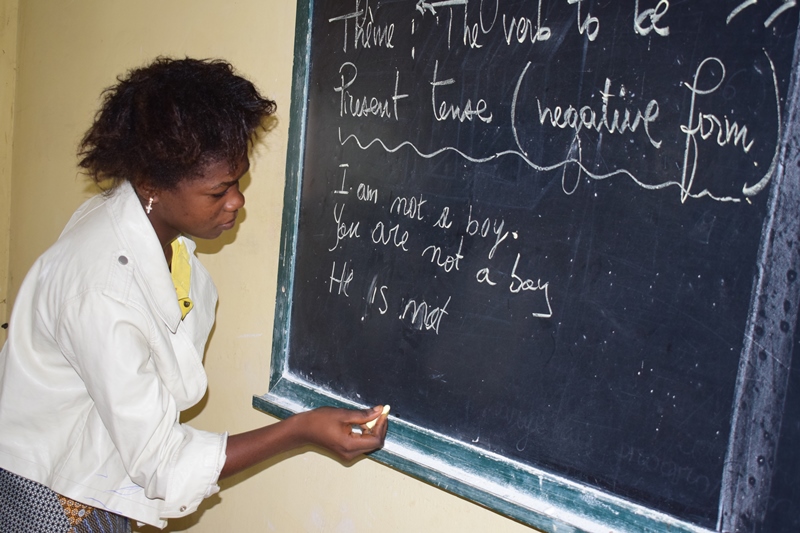 Thème : "The verb to be"
Present tense (negative form)
I am not a boy.
You are not a boy
He is not